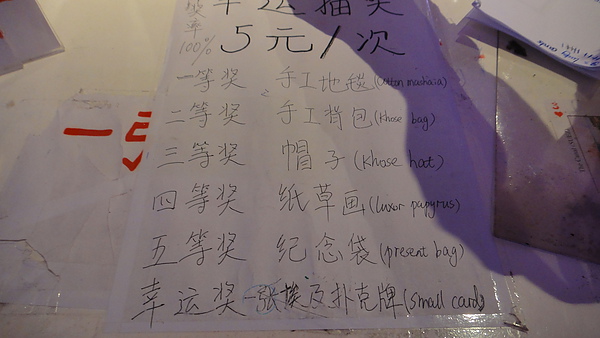 幸运抽奖
奖率100%
5元/次
一等奖 手工地毯(Cotton mashaia)
二等奖 手工背包(Khose bag)
三等奖 帽子(Khose hoot)
四等奖 纸草画(luxor papyrus)
五等奖 纪念袋(present bag)
幸运奖 一张埃及扑克牌(small card)